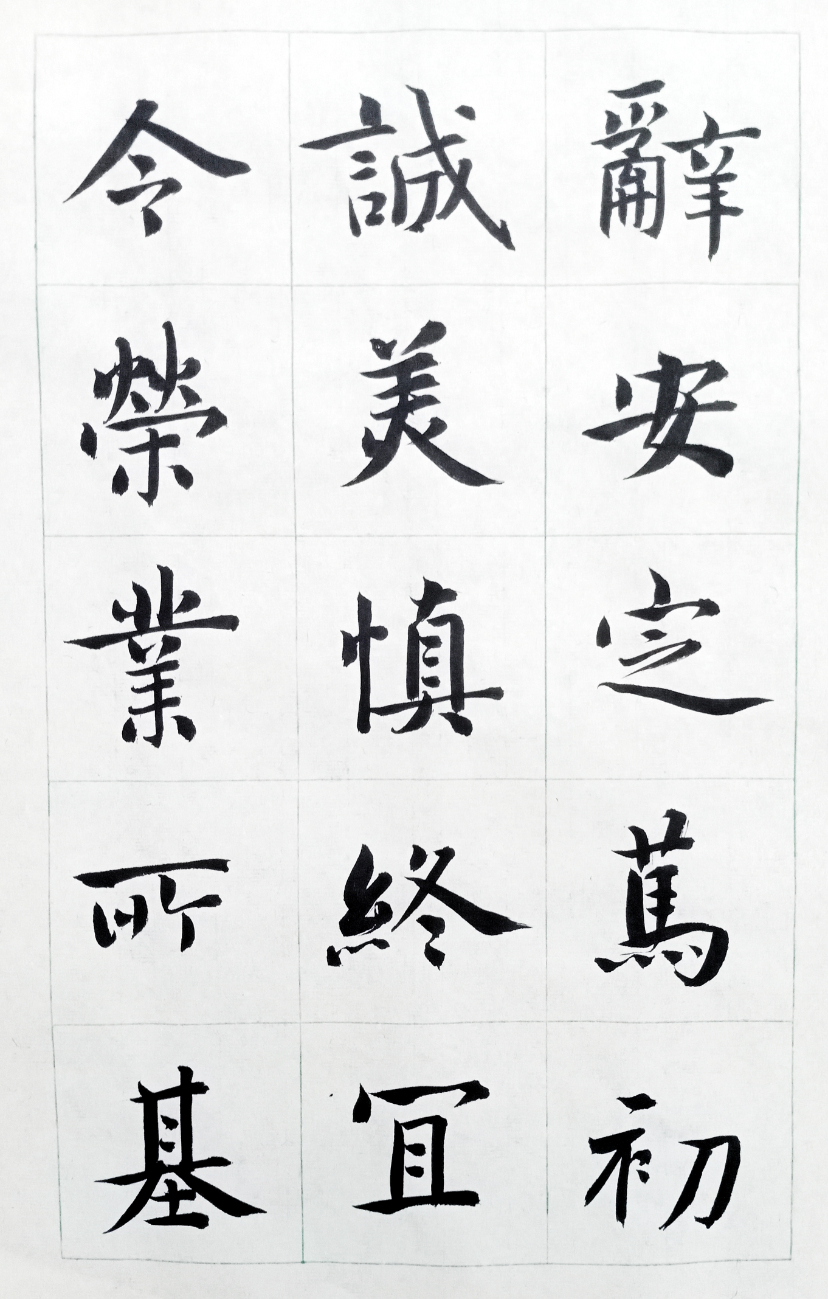 辭安定篤初
誠美慎終宜
令榮業所基